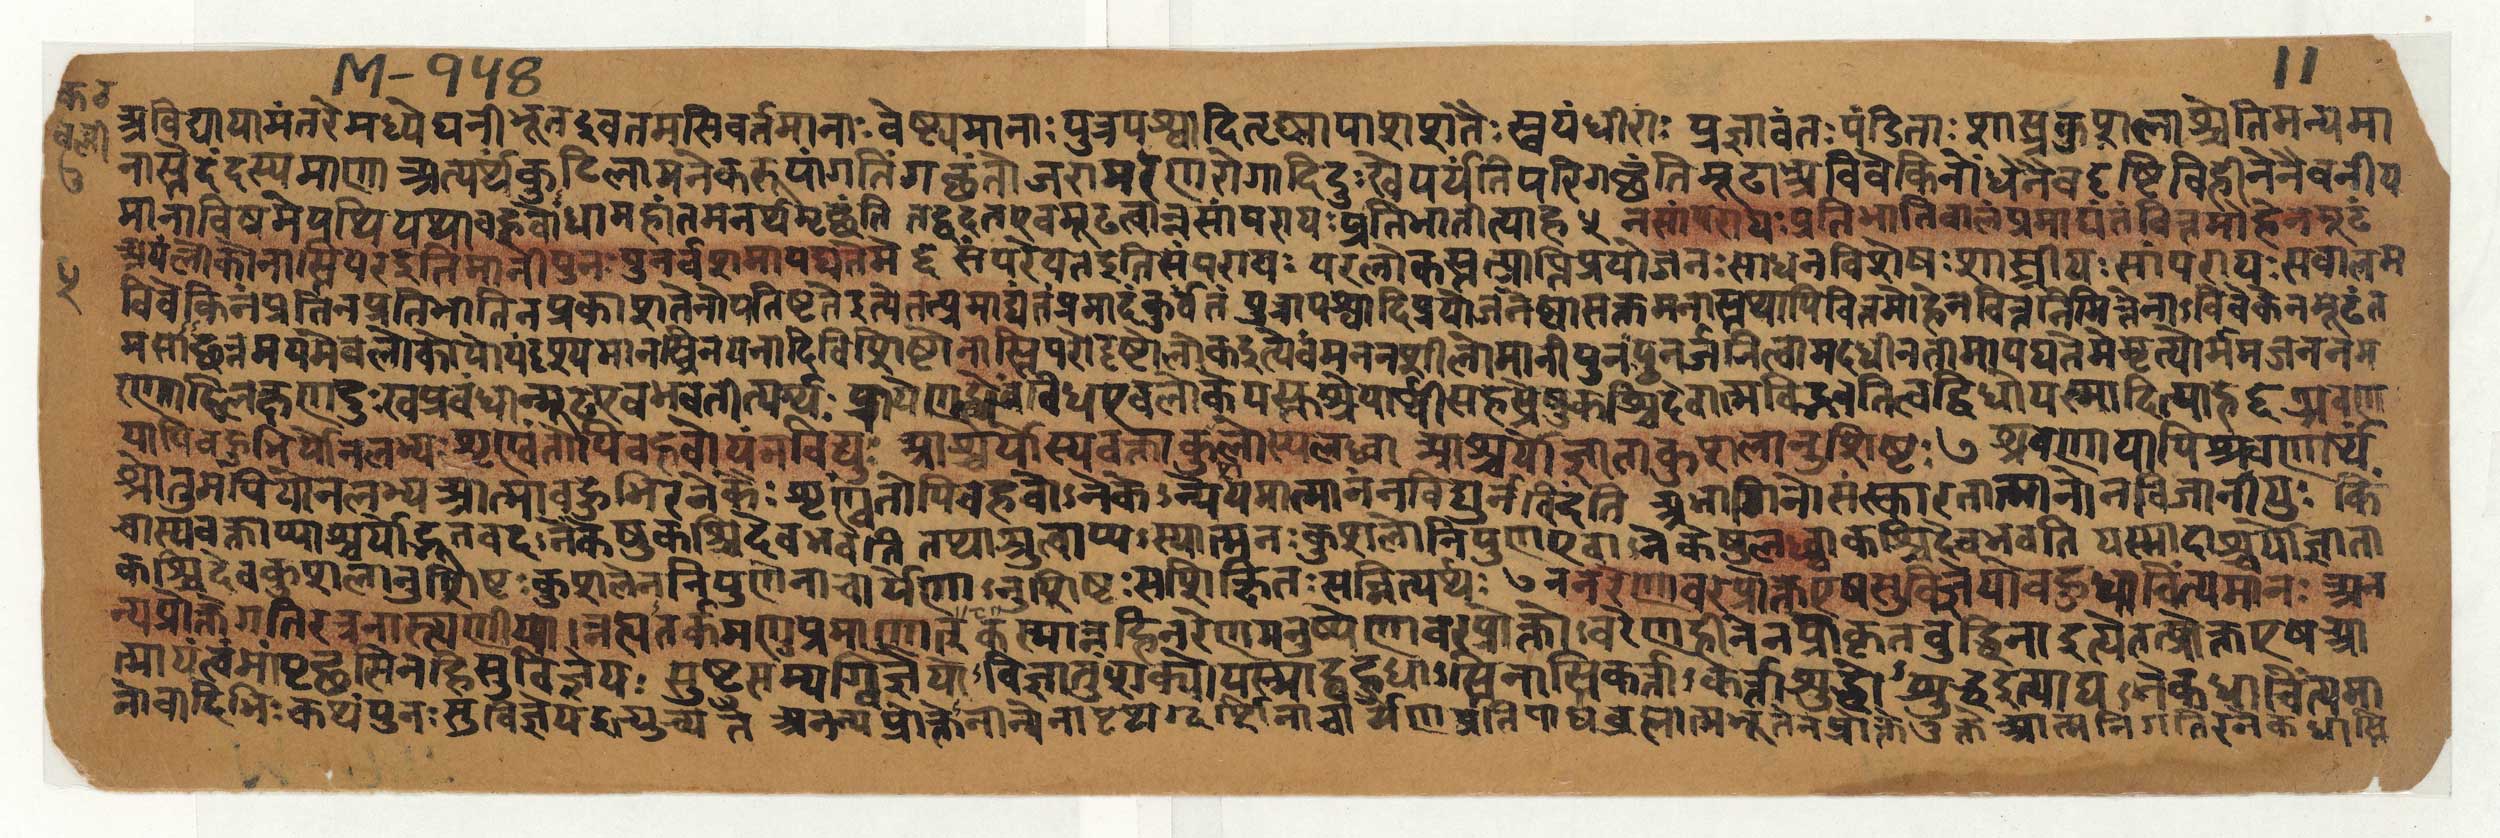 M-१५४
11
कठ
वल्ली
७
५
अविद्यायामंतरे मध्ये घनीभूत इव तमसि वर्तमानाः वेष्ट्यमानाः पुत्रपश्वादितृष्णापाशशतैः स्वयं धीराः प्रज्ञावंतः पंडिताः शास्त्रकुशलाश्चेति मन्यमा
नास्ते दंद्रम्यमाणा अत्यर्थं कुटिलामनेकरूपां गतिं गच्छंतो जरामरणरोगादिदुःखैः परियंति परिगच्छंति मूढा अविवेकिनोंधेनैव दृष्टिविहीनेनैव नीय
माना विषमे पथि यथा बहवोंधा महांतमनर्थमृच्छंति तद्वत् अत एव मूढत्वान्न सांपरायः प्रतिभातीत्याह ५ न सांपरायः प्रतिभाति बालं प्रमाद्यंतं वित्तमोहेन मूढं
अयं लोको नास्ति पर इति मानी पुनः पुनर्वशमापद्यते मे ६ संपरेयत इति संपरायः परलोकस्तत्प्राप्तिप्रयोजनः साधनविशेषः शास्त्रीयः सांपरायः स बालम
विवेकिनं प्रति न प्रतिभाति न प्रकाशते नोपतिष्टत इत्येतत्प्रमाद्यंतं प्रमादं कुर्वंतं पुत्रपश्वादिप्रयोजनेष्वासक्तमनास्तथापि वित्तमोहेन वित्तनिमित्तेनाऽविवेकेन मूढं त
मसाच्छन्नमयमेव लोको योयं दृश्यमानस्त्र्यन्नपानादिविशिष्टो नास्ति परोदृष्टो लोक इत्येवं मननशीलो मानी पुनः पुनर्जनित्वा मदधीनतामापद्यते मे मृत्योर्मम जननम
रणादिलक्षणदुःखप्रबंधान्मूढ एव भवतीत्यर्थः प्रायेण ह्येवंविध एव लोके यस्तु श्रेयोर्थी सहस्रेषु कश्चिदेवात्मविद्भवति त्वद्विधो यस्मादित्याह ६ श्रवणा
यापि बहुभिर्यो न लभ्यः शृण्वंतोपि बहवो यं न विद्युः आश्चर्योस्य वक्ता कुशलोस्य लब्धा आश्चर्यो ज्ञाता कुशलानुशिष्टः ७ श्रवणायापि श्रवणार्थं
श्रोतुमपि यो न लभ्य आत्मा बहुभिरनेकैः शृण्वंतोपि बहवोऽनेकेऽन्ये यमात्मानं न विद्युर्न विदंति अभागिनोसंस्कृतात्मानो न विजानीयुः किं
चास्य वक्ताप्याश्चर्योद्भुतवदऽनेकेषु कश्चिदेव भवति तथा श्रुत्वाप्यऽस्यात्मनः कुशलो निपुण एवाऽनेकेषु लब्धा कश्चिदेव भवति यस्मादाश्चर्यो ज्ञाता
कश्चिदेव कुशलानुशिष्टः कुशलेन निपुणेनाचार्येणाऽनुशिष्टः सशिक्षितः सन्नित्यर्थः ७ न नरेणावरेण प्रोक्त एष सुविज्ञेयो बहुधा चिंत्यमानः अन
न्यप्रोक्ते गतिरत्र नास्त्यणीयान् ह्यतर्क्यमणुप्रमाणात् कस्मान्न हि नरेण मनुष्येणावरेण प्रोक्तोऽवरेण हीनेन प्राकृतबुद्धिना इत्येतत्प्रोक्त एष आ
त्मा यं त्वं मां पृच्छसि न हि सुविज्ञेयः सुष्टु सम्यग्विज्ञेयो विज्ञातुं शक्यो यस्माद्बहुधाऽस्ति नास्ति कर्त्ताऽकर्त्ता शुद्धोऽशुद्ध इत्याद्यऽनेकधा चिंत्यमा
नो वादिभिः कथं पुनः सुविज्ञेय इत्युच्यते अनन्यप्रोक्तेनान्येनाचार्येण प्रतिपाद्यब्रह्मात्मभूतेन प्रोक्ते उक्ते आत्मनि गतिरनेकधास्ति